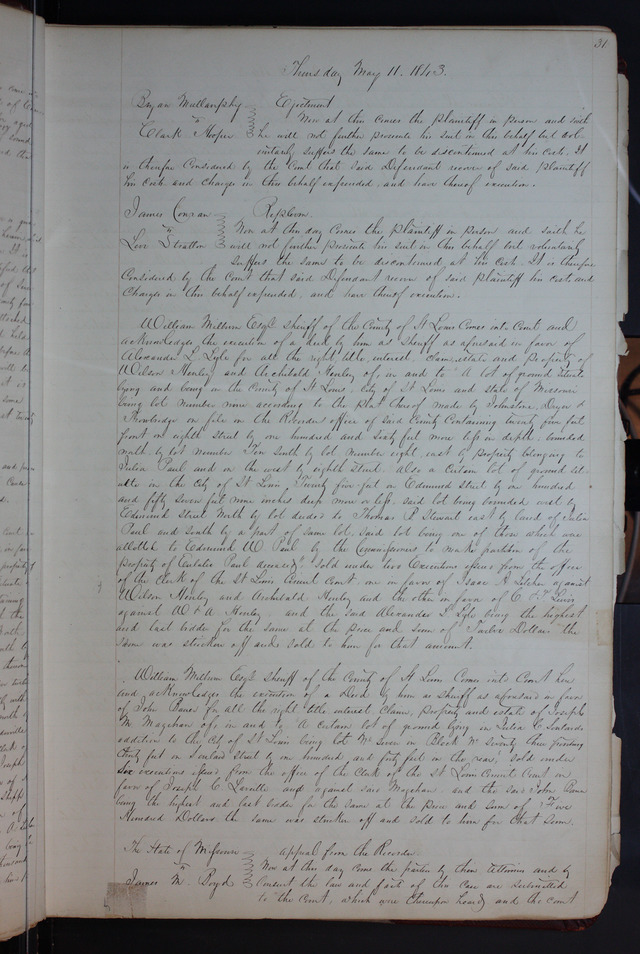 31
Thursday May 11. 1843.
Bryan Mullanphy Ejectment
vs Now at this comes the plaintiff in person and saith
Clark Hooper he will not further prosecute his suit in this behalf but vol-
untarily suffers the same to be discontinued at his costs. It
is therefore Considered by the Court that said Defendant recover of said plaintiff
his costs and charges in this behalf expended, and have thereof execution.
James Conran Replevin
vs Now at this day comes the plaintiff in person and saith he
Levi Stratton will not further prosecute his suit in this behalf but voluntarily
suffers the same to be discontinued at his costs. It is therefore
Considered by the Court that said Defendant recover of said plaintiff his costs and
Charges in this behalf expended, and have thereof execution.
William Milburn Esqr. Sheriff of the County of St Louis Comes into Court and
acknowledges the execution of a deed by him as Sheriff as aforesaid in favor of
Alexander L. Lyle for all the right title, interest, claim, estate and property of
Wilson Henley and Archibald Henley of, in and to "A lot of ground situate
lying and being in the County of St Louis, City of St Louis and state of Missouri
being lot number nine according to the plat thereof made by Johnstone, Dryer &
Trowbridge on file in the Recorders office of said County Containing twenty five feet
front on eighth Street by one hundred and sixty feet more or less in depth, bounded
north by lot number Ten South by lot number eight, east by property belonging to
Julia Paul and on the west by eighth Street. Also a certain lot of ground sit-
uate in the City of St Louis, Twenty five feet on Edmund Street by one hundred
and fifty seven feet nine inches deep more or less, said lot being bounded west by
Edmund Street North by lot deeded to Thomas P. Stewart east by land of Julia
Paul and South by a part of same lot, said lot being one of those which was
allotted to Edmund W Paul by the Commissioners to make partition of the
property of Eulalie Paul deceased". Sold under two Executions issued from the office
of the Clerk of the St Louis Circuit Court, one in favor of Isaac A Letcher against
Wilson Henley and Archibald Henley and the other in favor of C & J Lewis
against W & A Henley, and the said Alexander L Lyle being the highest
and last bidder for the same at the price and sum of Twelve Dollars the
same was stricken off and sold to him for that amount.
William Milburn Esqr. Sheriff of the County of St Louis Comes into Court here
and acknowledges the execution of a Deed by him as Sheriff as aforesaid in favor
of John Bauer for all the right title interest, Claim, property and estate of Joseph
M. Magehan of, in and to "A certain lot of ground lying in Julia C. Soulards
addition to the City of St Louis being lot No Seven in Block No Seventy three fronting
thirty feet on Soulard Street by one hundred and forty feet in the rear," sold under
six executions issued from the office of the Clerk of the St Louis Circuit Court in
favor of Joseph C. Laveille and against said Magehan, and the said John Bauer
being the highest and last bidder for the same at the price and sum of Five
Hundred Dollars the same was stricken off and sold to him for that sum.
The State of Missouri Appeal from the Recorder.
vs Now at this day come the parties by their attornies and by
James M. Boyd Consent the law and facts of this case are submitted
to the Court, which were thereupon heard, and the Court